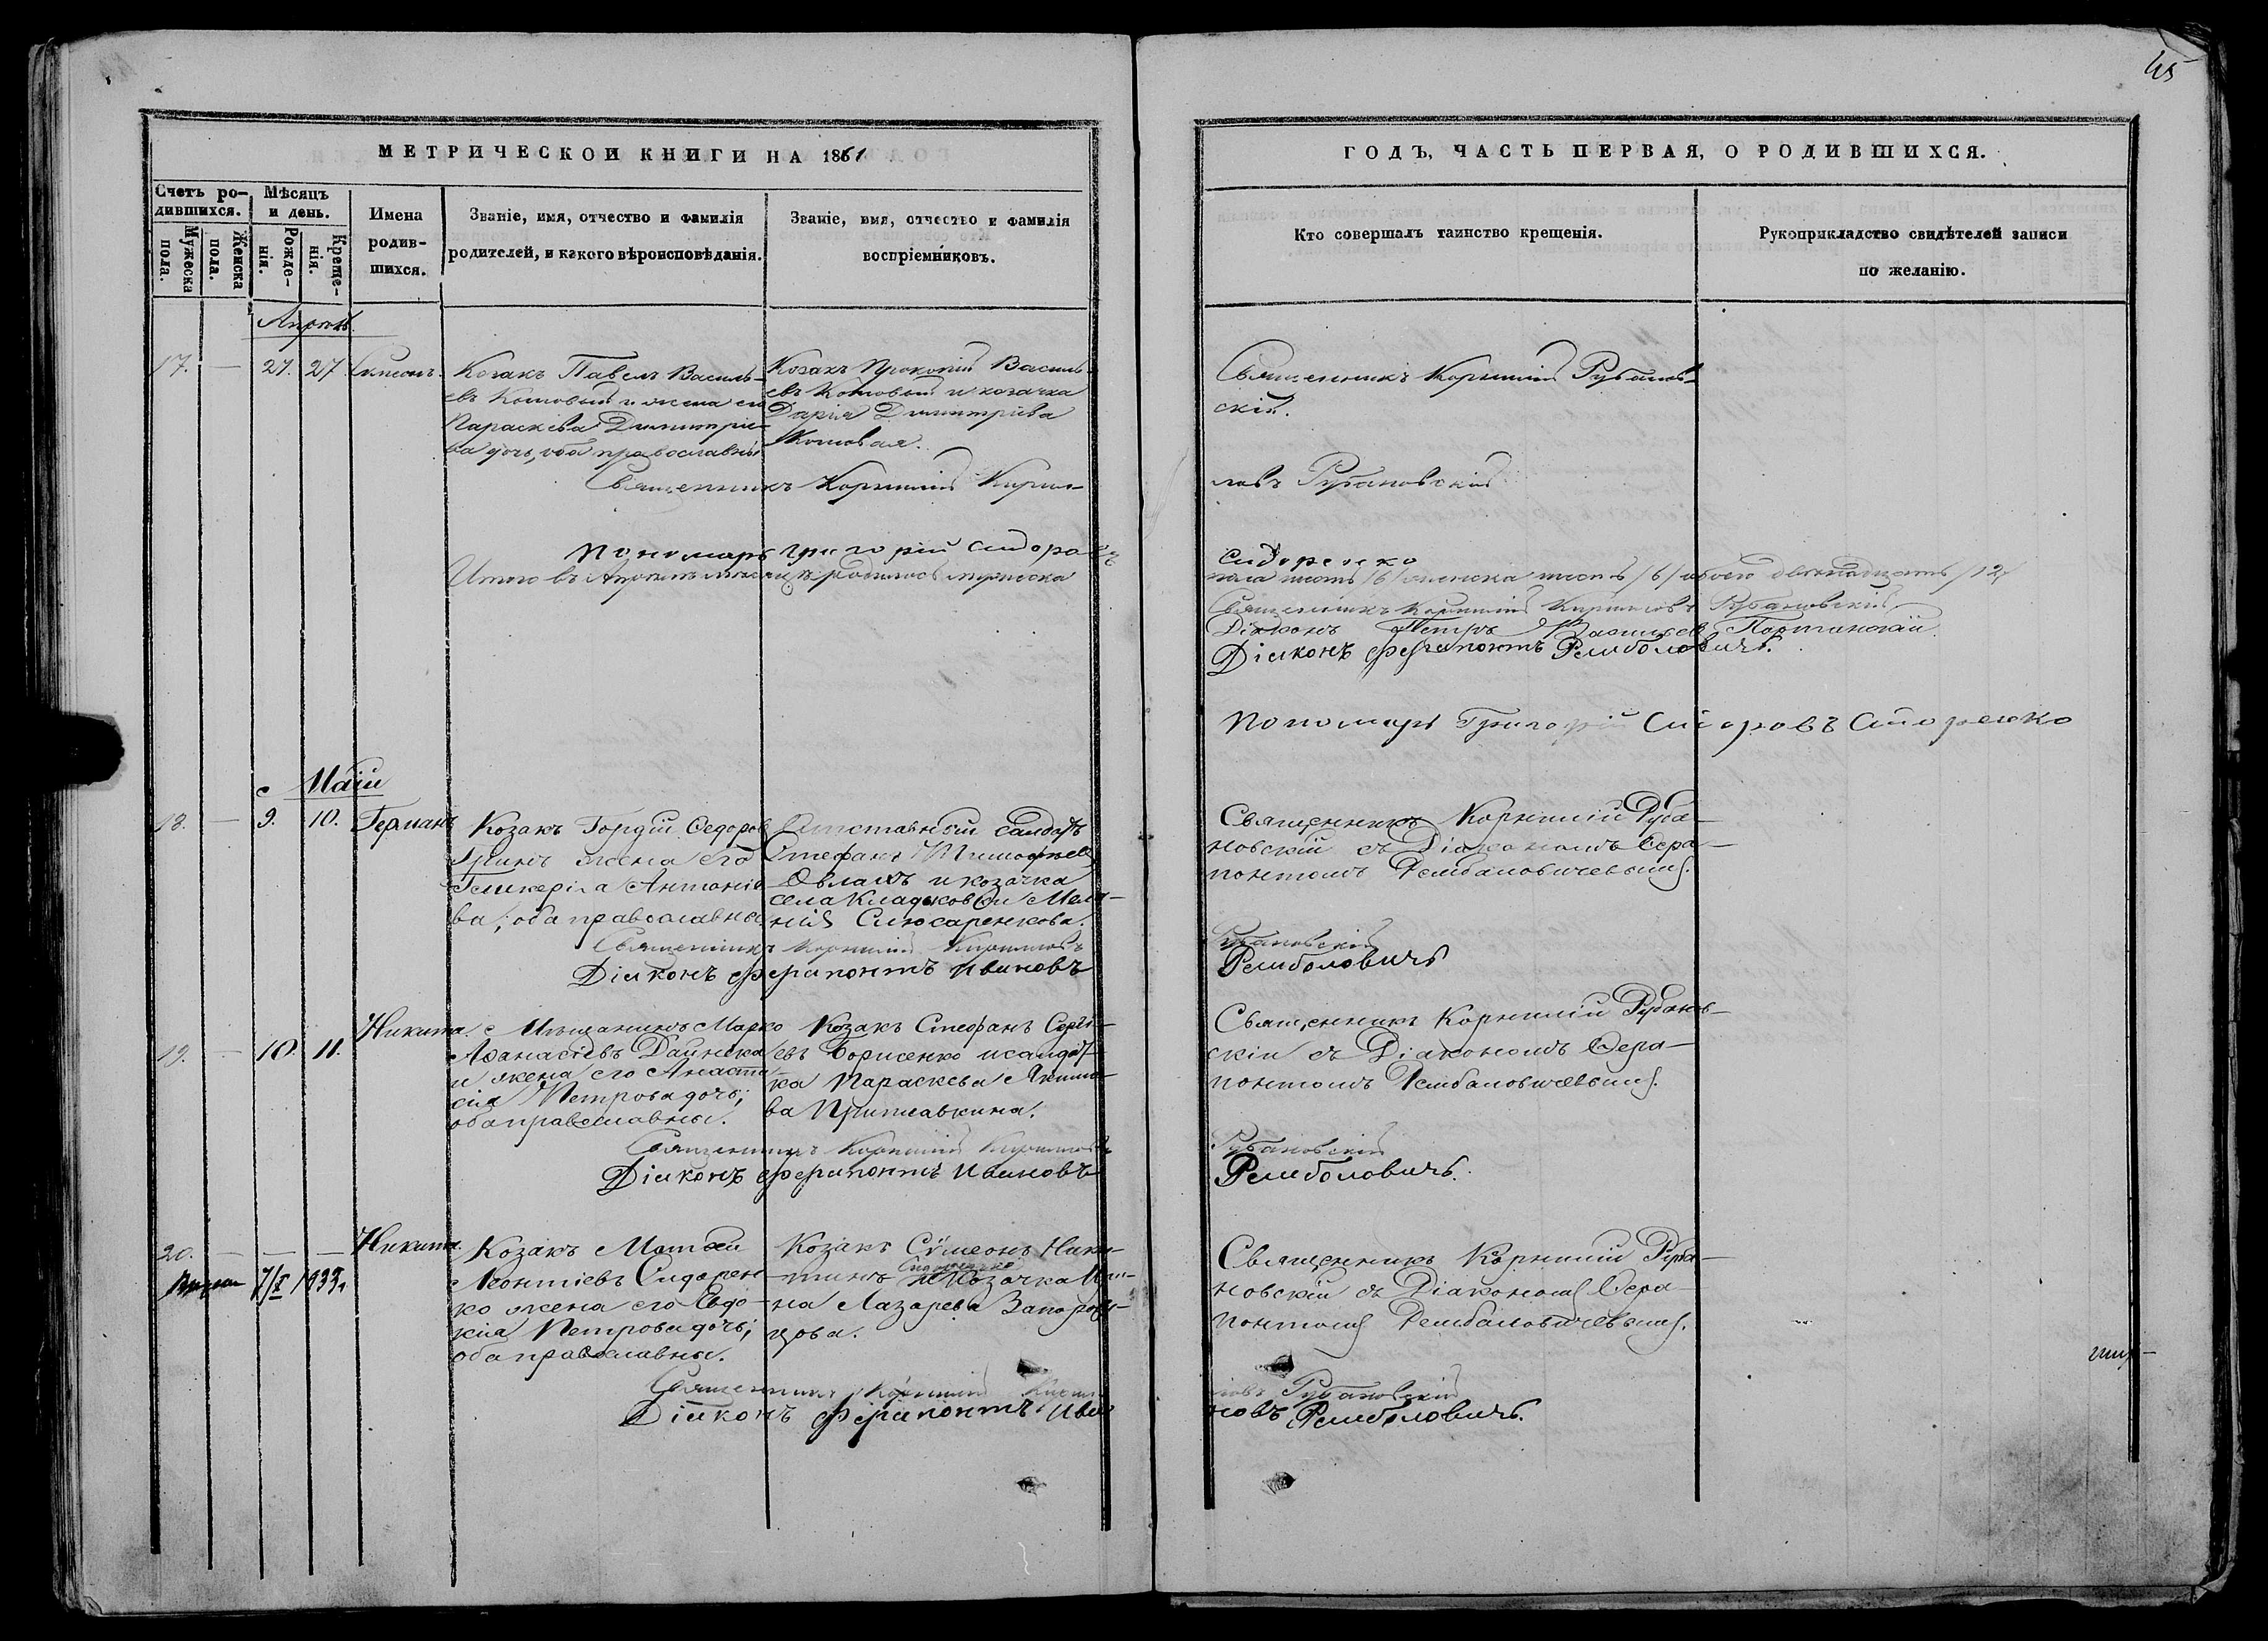 45
МЕТРИЧЕСКОЙ КНИГИ НА 1861
ГОДЪ, ЧАСТЬ ПЕРВАЯ, О РОДИВШИХСЯ.
Счетъ ро-
дившихся.
Мужеска
пола.
Женска
пола.
Мѣсяцъ
и день.
Рожде-
нія.
Креще-
нія.
Имена
родив-
шихся.
Званіе, имя, отчество и фамилія
родителей, и какого вѣроисповѣданія.
Званіе, имя, отчество и фамилія
воспріемниковъ.
Кто совершалъ таинство крещенія.
Рукоприкладство свидѣтелей записи
по желанію.
17. — 27
Козакъ Павелъ Василь-
евъ Котовый и жена его
Параскева Димитріе-
ва дочь, оба православны
Козакъ Прокопій Василь-
евъ Котовый и козачка
Дарія Димитріева
Котовая.
Священникъ Корнилій Рубанов-
скій.
Священникъ Корнилій Кирил-
ловъ Рубановскій
Пономарь Григорій Сидоровъ
Сидоренко
Итого въ Апрѣлѣ мѣсяцѣ родилось мужеска
пола шесть /6/ женска шесть /6/ обоего двенадцать /12/
Священникъ Корнилій Кирилловъ Рубановскій
Діяконъ Петръ
Діяконъ Ферапонтъ Рембаловичъ.
Пономарь Григорій Сидоровъ Сидоренко
Маій
18. — 9. 10. Германъ
Козакъ Гордій Ѳедоров
Гринь жена его
Гликерія Антоніе
ва; оба православны
Отставный салдатъ
Стефанъ Тимофѣев
Овлахъ и козачка
села Кладьковки Мела-
нія Слюсаренкова.
Священникъ Корнилій Руба-
новскій съ Діакономъ Ѳера-
понтомъ Рембаловичевымъ.
Священникъ Корнилій Кирилловъ
Рубановскій
Діяконъ Ферапонтъ Ивановъ
Рембаловичъ
19. — 10. 11. Никита.
Мѣщанинъ Марко
Афанасіевъ Дайнека
и жена его Анаста-
сіа Петрова дочь;
оба православны.
Козакъ Стефанъ Сергі-
евъ Борисенко и салдат-
ка Параскева Якимо-
ва Приставкина.
Священникъ Корнилій Рубанов-
скій съ Діакономъ Ѳера-
понтомъ Рембаловичевымъ.
Священникъ Корнилій Кирилловъ
Рубановскій
Діяконъ Ферапонтъ Ивановъ
Рембаловичъ.
20. — — — Никита.
7/X 1933г
Козакъ Матѳей
Леонтіевъ Сидорен-
ко жена его Евдо-
кіа Петрова дочь;
оба православны.
Козакъ Сѵмеонъ Ники-
тинъ Сидоренко и Козачка
на Лазарева Запорож-
цова.
Священникъ Корнилій Руба-
новскій съ Діакономъ Ѳера-
понтомъ Рембаловичевымъ.
Священникъ Корнилій Кирил-
ловъ Рубановскій
Діяконъ Ферапонтъ Ива
новъ Рембаловичъ.